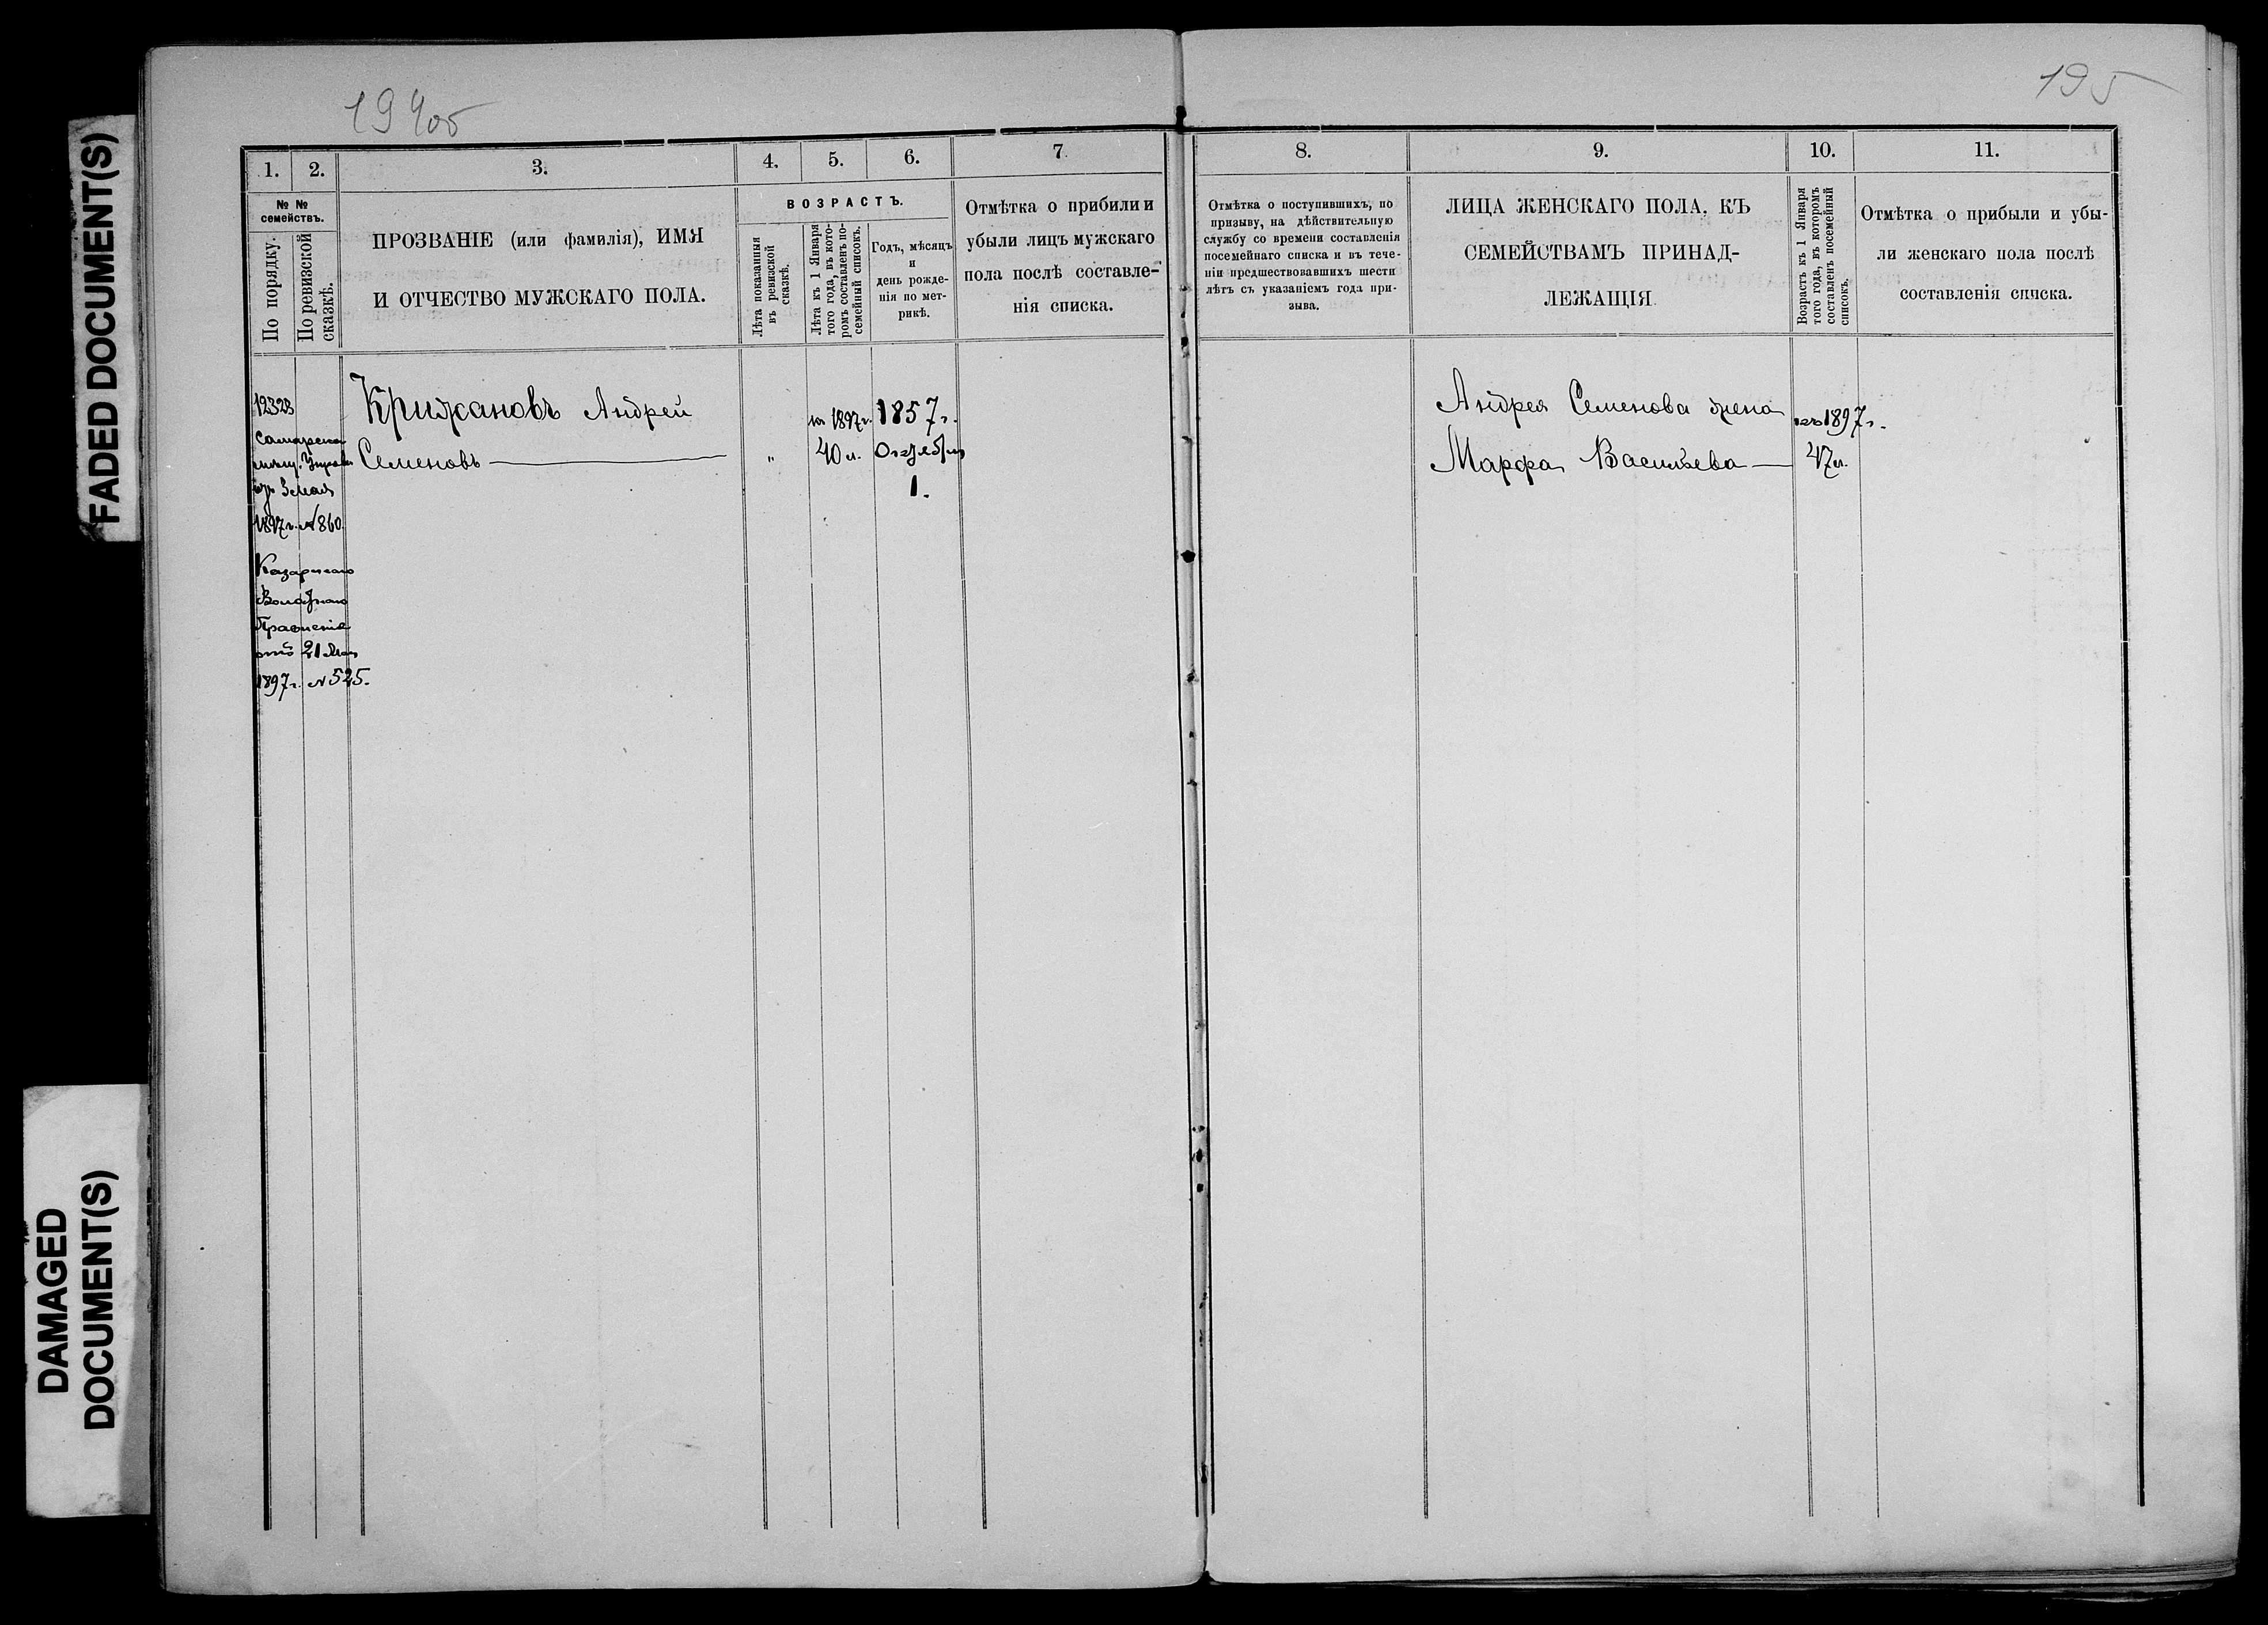 FADED DOCUMENT(S)
DAMAGED
DOCUMENT(S)
194об
195
1. 2. 3. 4. 5. 6. 7.
№ №
семействъ.
По порядку.
По ревизской
сказкѣ.
ПРОЗВАНІЕ (или фамилія), ИМЯ
И ОТЧЕСТВО МУЖСКАГО ПОЛА.
ВОЗРАСТЪ.
Лѣта показанныя
въ ревизской
сказкѣ.
Лѣта къ 1 Января
того года, въ кото-
ромъ составленъ по-
семейный списокъ.
Годъ, мѣсяцъ
и
день рожде-
нія по мет-
рикѣ.
Отмѣтка о прибили и
убыли лицъ мужскаго
пола послѣ составле-
нія списка.
12323
Самарской
мѣщ. Управы
3 Мая
1897 г. № 860.
Волостного
Правленія
отъ 21 Мая
1897 г. № 525.
Крижановъ Андрей
Семеновъ
"
на 1897 г.
40 л.
1857 г.
Октября
1.
8. 9. 10. 11.
Отмѣтка о поступившихъ, по
призыву, на дѣйствительную
службу со времени составленія
посемейнаго списка и въ тече-
ніи предшествовавшихъ шести
лѣтъ съ указаніемъ года при-
зыва.
ЛИЦА ЖЕНСКАГО ПОЛА, КЪ
СЕМЕЙСТВАМЪ ПРИНАД-
ЛЕЖАЩІЯ
Возрастъ къ 1 Января
того года, въ которомъ
составленъ посемейный
списокъ.
Отмѣтка о прибыли и убы-
ли женскаго пола послѣ
составленія списка.
Андрея Семенова жена
Марфа Васильева
1897 г.
47 л.